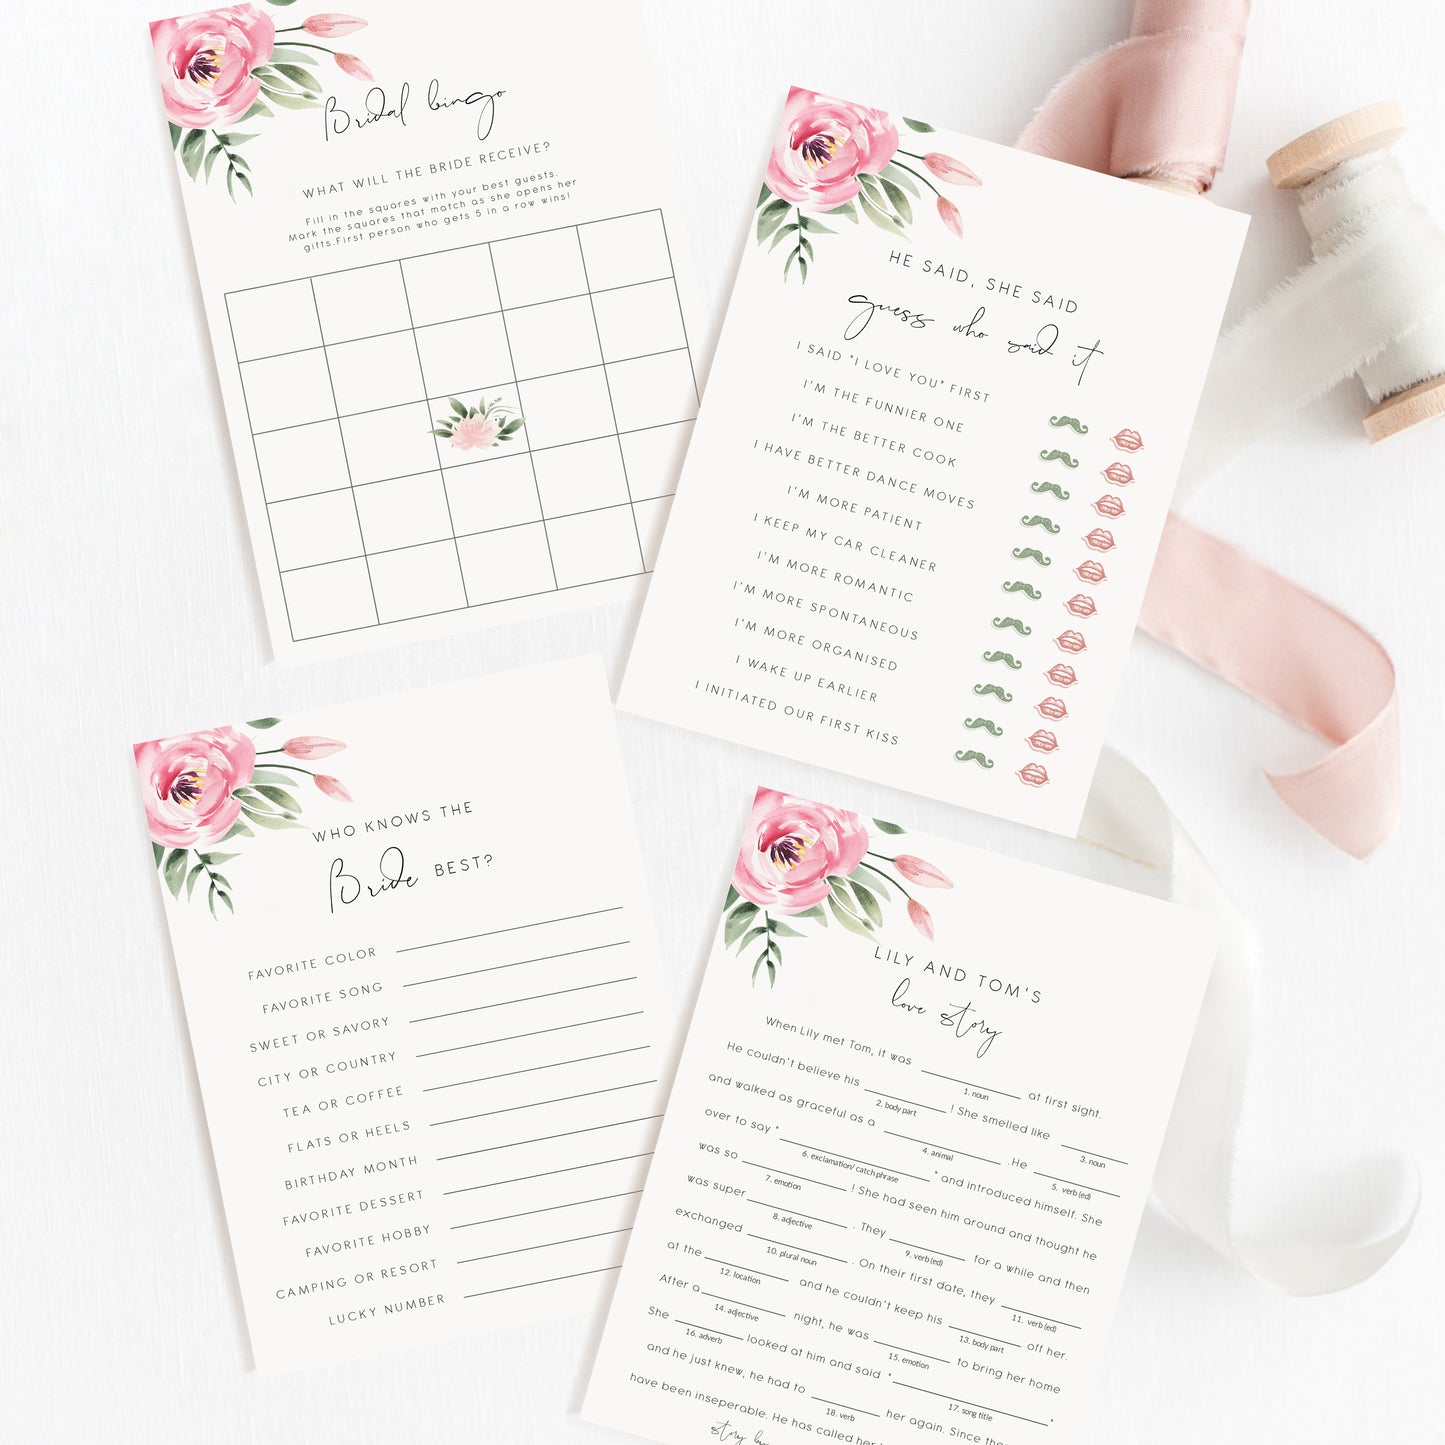 Bridal bingo
WHAT WILL THE BRIDE RECEIVE?
Fill in the squares with your best guests.
Mark the squares that match as she opens her
gifts.First person who gets 5 in a row wins!
HE SAID, SHE SAID
guess who said it
I SAID "I LOVE YOU" FIRST
I'M THE FUNNIER ONE
I'M THE BETTER COOK
I HAVE BETTER DANCE MOVES
I'M MORE PATIENT
I KEEP MY CAR CLEANER
I'M MORE ROMANTIC
I'M MORE SPONTANEOUS
I'M MORE ORGANISED
I WAKE UP EARLIER
I INITIATED OUR FIRST KISS
WHO KNOWS THE
Bride BEST?
FAVORITE COLOR
FAVORITE SONG
SWEET OR SAVORY
CITY OR COUNTRY
TEA OR COFFEE
FLATS OR HEELS
BIRTHDAY MONTH
FAVORITE DESSERT
FAVORITE HOBBY
CAMPING OR RESORT
LUCKY NUMBER
LILY AND TOM'S
love story
When Lily met Tom, it was at first sight.
1. noun
He couldn't believe his ! She smelled like
2. body part 3. noun
and walked as graceful as a . He
4. animal 5. verb (ed)
over to say " " and introduced himself. She
6. exclamation/ catch phrase
was so ! She had seen him around and thought he
7. emotion
was super . They for a while and then
8. adjective 9. verb (ed)
exchanged . On their first date, they
10. plural noun 11. verb (ed)
at the and he couldn't keep his off her.
12. location 13. body part
After a night, he was to bring her home
14. adjective 15. emotion
She looked at him and said " "
16. adverb 17. song title
and he just knew, he had to her again. Since then
18. verb
have been inseperable. He has called her
story